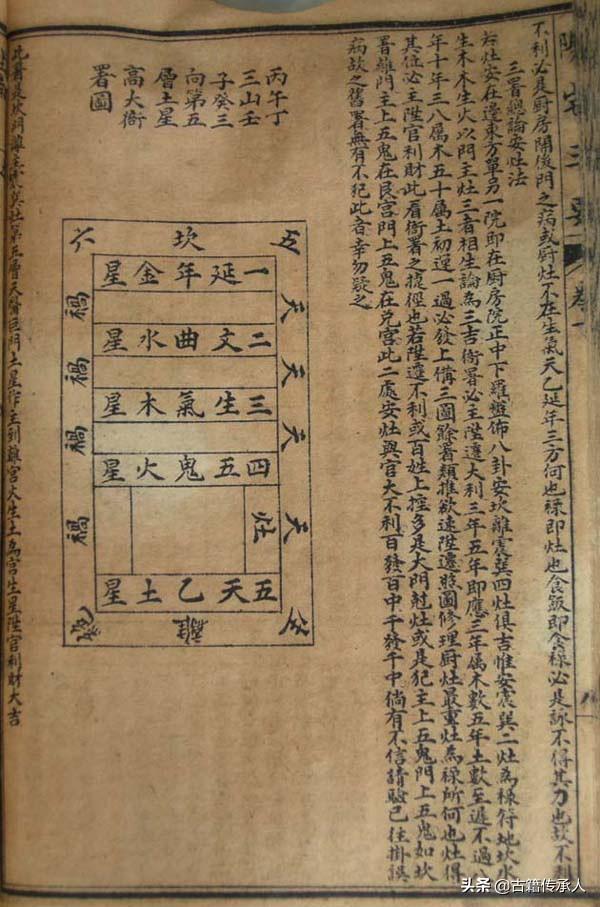 陽宅三要 卷一
不利必是厨房開後門之病或厨灶不在生氣天乙延年三方何也祿即灶也食飯即食祿必是詠不得其力也故不利
三署總論安灶法
灶安在邊東方單另一院即在厨房院正中下羅盤佈八卦安坎離震巽四灶俱吉惟安震巽二灶為祿符地坎水
生木木生火以門主灶三者相生論為三吉衙署必主陞遷大利三年五年即應三年属木數五年土數至遲不過
年十年三八属木五十属土初選一過必發上備三圖餘署類推欲速陞遷照圖修理厨灶最重灶為祿所何也灶得
其位必主陞官利財此看衙署之提徑也若陞遷不利或百姓上控多是大門尅灶或是犯主上五鬼門上五鬼如坎
署離門主上五鬼在艮宮門上五鬼在兌宮此二處安灶與官大不利百發百中千發千中倘有不信請驗已往掛誤
病故之舊署無有不犯此者幸勿疑之
丙午丁
三山壬
子癸三
向第五
層土星
高大衙
署圖
五 坎 六
一延年金星
二文曲水星
三生氣木星
四五鬼火星
五天乙土星
天 天 天 天
禍 禍 禍 禍
灶
離
此署是坎門離主巽灶第五層天醫巨門土星作主到離宮火生土為宮生星陞官利財大吉
头条 @古籍传承人